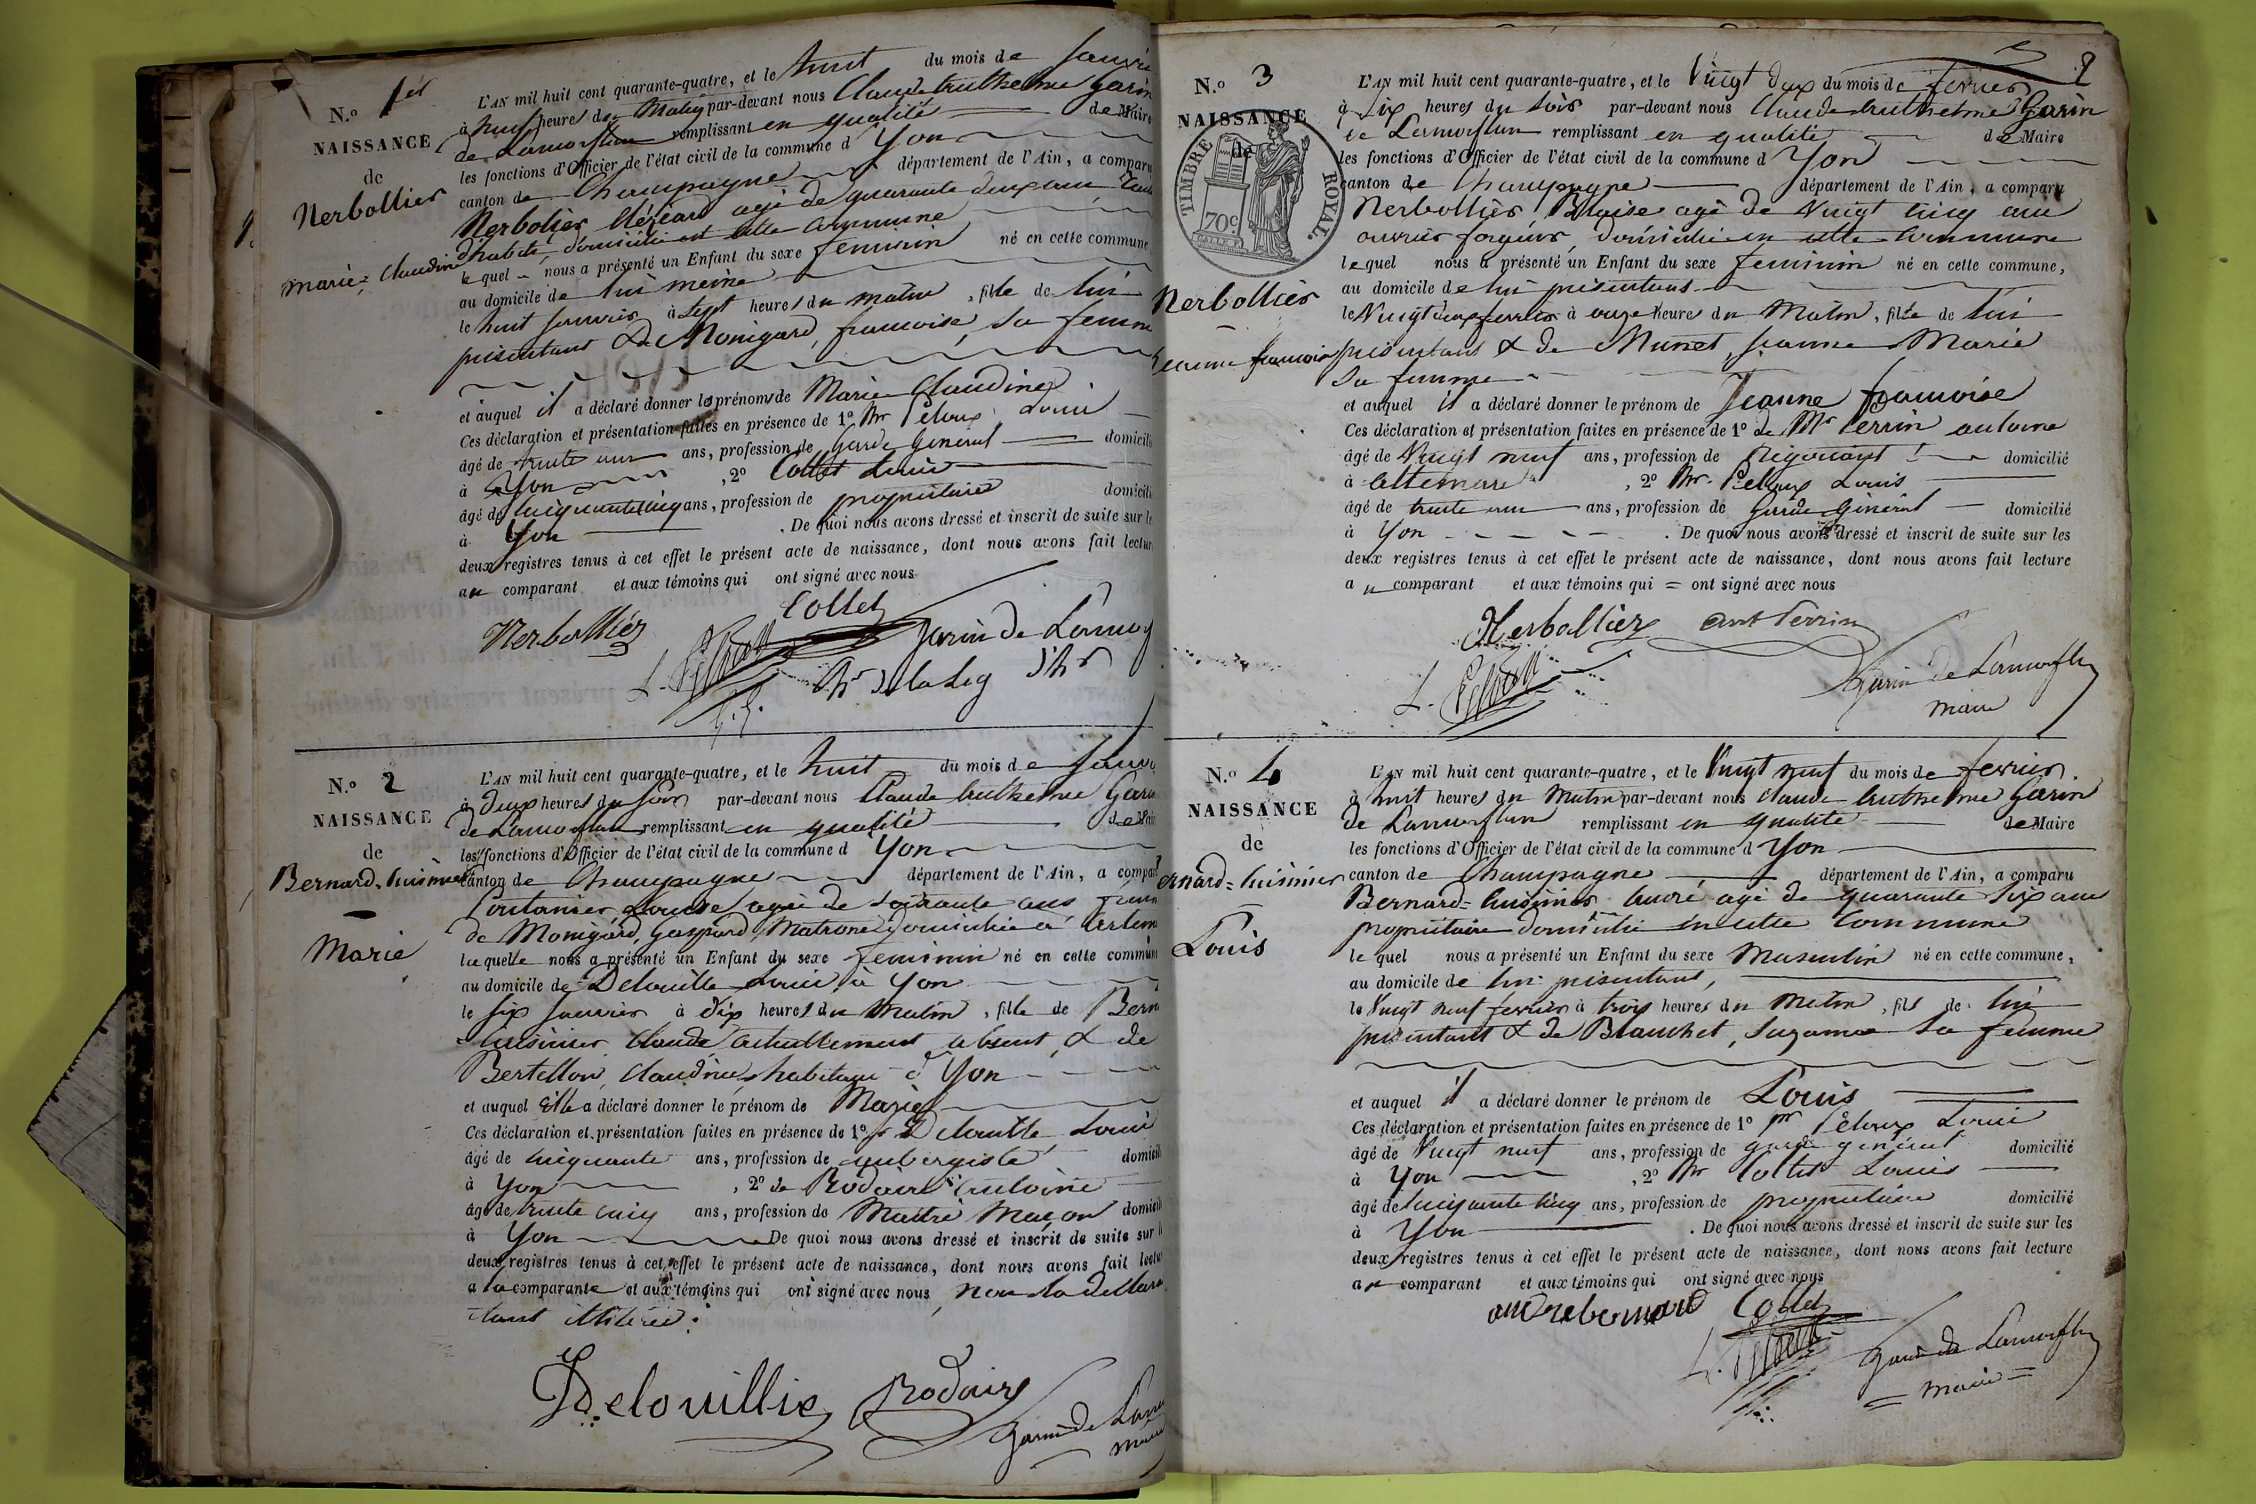 N.o 1er
NAISSANCE
de
Nerbollier
Marie = Claudine
L'AN mil huit cent quarante-quatre, et le huit du mois de Janvi
à neuf heures du Matin par-devant nous Claude Anthelme Garin
de Lamorflan remplissant en qualité de Maire
les fonctions d'Officier de l'état civil de la commune d Yon
canton de Champagne département de l'Ain, a comparu
Nerbolier agé de quarante deux ans
domicilié en cette commune
le quel nous a présenté un Enfant du sexe feminin né en cette commune
au domicile de lui même
le huit Janvier à Sept heures du matin, fille de lui
présentant & de Monigard, francoise, sa femme
et auquel il a déclaré donner les prénoms de Marie Claudine
Ces déclaration et présentation faites en présence de 1o Mr Peloux Louis
âgé de trente un ans, profession de Garde Général domicilié
à Yon, 2o Collet Louis
âgé de Cinquante cinq ans, profession de propriétaire domicili
à Yon. De quoi nous avons dressé et inscrit de suite sur le
deux registres tenus à cet effet le présent acte de naissance, dont nous avons fait lectur
au comparant et aux témoins qui ont signé avec nous
Nerbollier
Collet
Garin de Lamor
N.o 2
NAISSANCE
de
Bernard = Cuisinier
Marie
L'AN mil huit cent quarante-quatre, et le huit du mois de Janv
à Deux heures du soir par-devant nous Claude Anthelme Garin
de Lamorflan remplissant en qualité de Mair
les fonctions d'Officier de l'état civil de la commune d Yon
canton de Champagne département de l'Ain, a compar
agée de Soixante ans
de Monigard, Gaspard, Matrone domiciliée à
laquelle nous a présenté un Enfant du sexe feminin né en cette commun
au domicile de Delouille Louis, à Yon
le Six Janvier à Dix heures du Matin, fille de Bern
= Cuisinier Claude actuellement absent, & de
Bertillon, Claudine habitage d'Yon
et auquel Elle a déclaré donner le prénom de Marie
Ces déclaration et présentation faites en présence de 1o Delouille Louis
âgé de cinquante ans, profession de aubergiste domicili
à Yon, 2o de Rodaire Antoine
âgé de trente cinq ans, profession de Maitre Maçon domicili
à Yon De quoi nous avons dressé et inscrit de suite sur l
deux registres tenus à cet effet le présent acte de naissance, dont nous avons fait lectu
a la comparante et aux témoins qui ont signé avec nous, non la
étant illitérée.
Delouillie
Rodaire
Garin de Lamo
maire
N.o 3
NAISSANCE
de
TIMBRE ROYAL.
70c.
Nerbollier
Jeanne francoise
L'AN mil huit cent quarante-quatre, et le Vingt deux du mois de fevrier
à Six heures du Soir par-devant nous Claude Anthelme Garin
de Lamorflan remplissant en qualité de Maire
les fonctions d'Officier de l'état civil de la commune d Yon
canton de Champagne département de l'Ain, a comparu
Nerbollier, Blaise agé de Vingt cinq ans
ouvrier forgeur, domicilié en cette commune
lequel nous a présenté un Enfant du sexe feminin né en cette commune,
au domicile de lui présentant
le Vingt deux fevrier à onze heures du Matin, fille de lui
présentant & de Munet, Jeanne Marie
Sa femme
et auquel il a déclaré donner le prénom de Jeanne francoise
Ces déclaration et présentation faites en présence de 1o de Mr Perrin antoine
âgé de Vingt neuf ans, profession de Négociant domicilié
à Artemare, 2o Mr. Peloux Louis
âgé de trente un ans, profession de Garde Général domicilié
à Yon. De quoi nous avons dressé et inscrit de suite sur les
deux registres tenus à cet effet le présent acte de naissance, dont nous avons fait lecture
au comparant et aux témoins qui = ont signé avec nous
Nerbollier
ant Perrin
Garin de Lamorflan
maire
N.o 4
NAISSANCE
de
ernard = Cuisinier
Louis
L'AN mil huit cent quarante-quatre, et le Vingt neuf du mois de fevrier.
à huit heures du Matin par-devant nous Claude Anthelme Garin
de Lamorflan remplissant en qualité de Maire
les fonctions d'Officier de l'état civil de la commune d Yon
canton de Champagne département de l'Ain, a comparu
Bernard = Cuisinier André agé de quarante Six ans
propriétaire domicilié en cette Commune
le quel nous a présenté un Enfant du sexe Masculin né en cette commune,
au domicile de lui présentant,
le Vingt neuf fevrier à trois heures du Matin, fils de lui
présentant & de Blanchet, Suzanne Sa femme
et auquel il a déclaré donner le prénom de Louis
Ces déclaration et présentation faites en présence de 1o Mr Peloux Louis
âgé de Vingt neuf ans, profession de garde général domicilié
à Yon, 2o Mr Collet Louis
âgé de cinquante cinq ans, profession de propriétaire domicilié
à Yon. De quoi nous avons dressé et inscrit de suite sur les
deux registres tenus à cet effet le présent acte de naissance, dont nous avons fait lecture
au comparant et aux témoins qui ont signé avec nous
andre bernard
Collet
Garin de Lamorflan
= Maire =